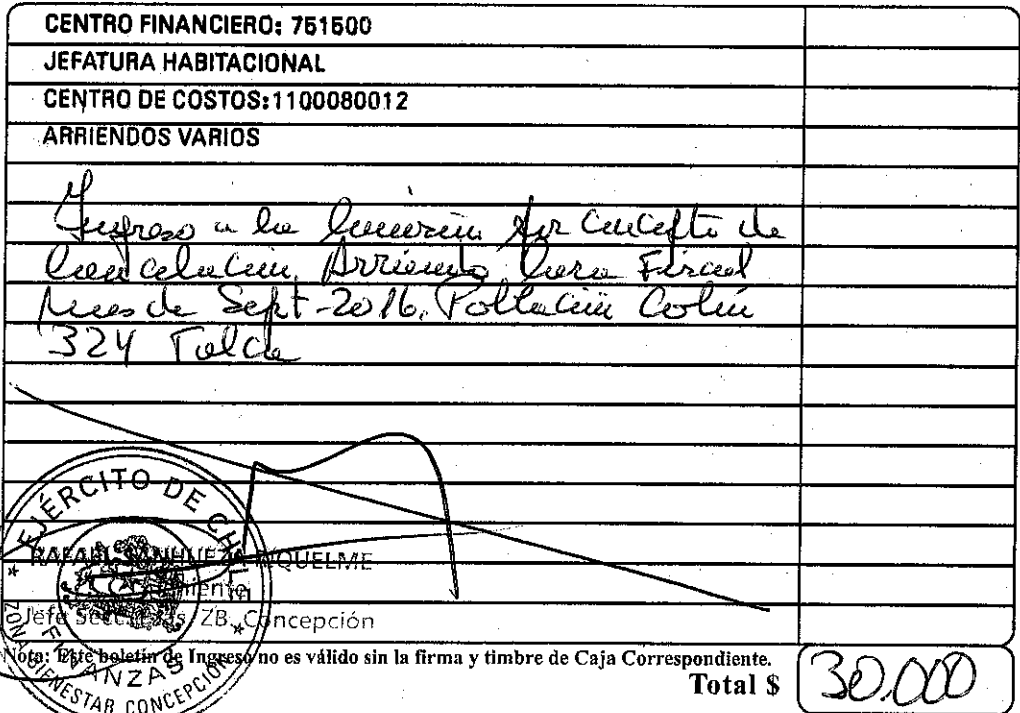 CENTRO FINANCIERO: 751500
JEFATURA HABITACIONAL
CENTRO DE COSTOS:1100080012
ARRIENDOS VARIOS
Ingreso a la Comisión por Concepto de
Cancelación Arriendo Casa Fiscal
Mes de Sept-2016, Población Colín
324 Talca
EJÉRCITO DE CHILE
RAFAEL SANHUEZA RIQUELME
Jefe ZB. Concepción
FINANZAS
ZONA BIENESTAR CONCEPCIÓN
Nota: Este boletín de Ingreso no es válido sin la firma y timbre de Caja Correspondiente.
Total $ 30.000